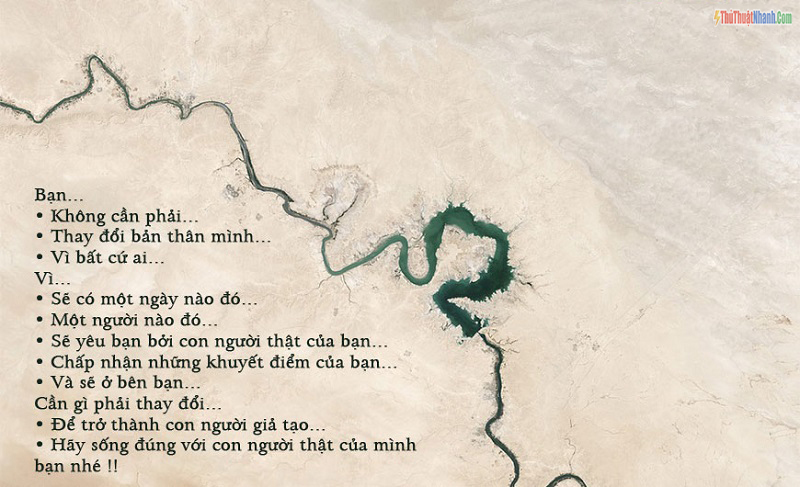 ThủThuậtNhanh.Com
Bạn...
• Không cần phải...
• Thay đổi bản thân mình...
• Vì bất cứ ai...
Vì...
• Sẽ có một ngày nào đó...
• Một người nào đó...
• Sẽ yêu bạn bởi con người thật của bạn...
• Chấp nhận những khuyết điểm của bạn...
• Và sẽ ở bên bạn...
Cần gì phải thay đổi...
• Để trở thành con người giả tạo...
• Hãy sống đúng với con người thật của mình
bạn nhé !!